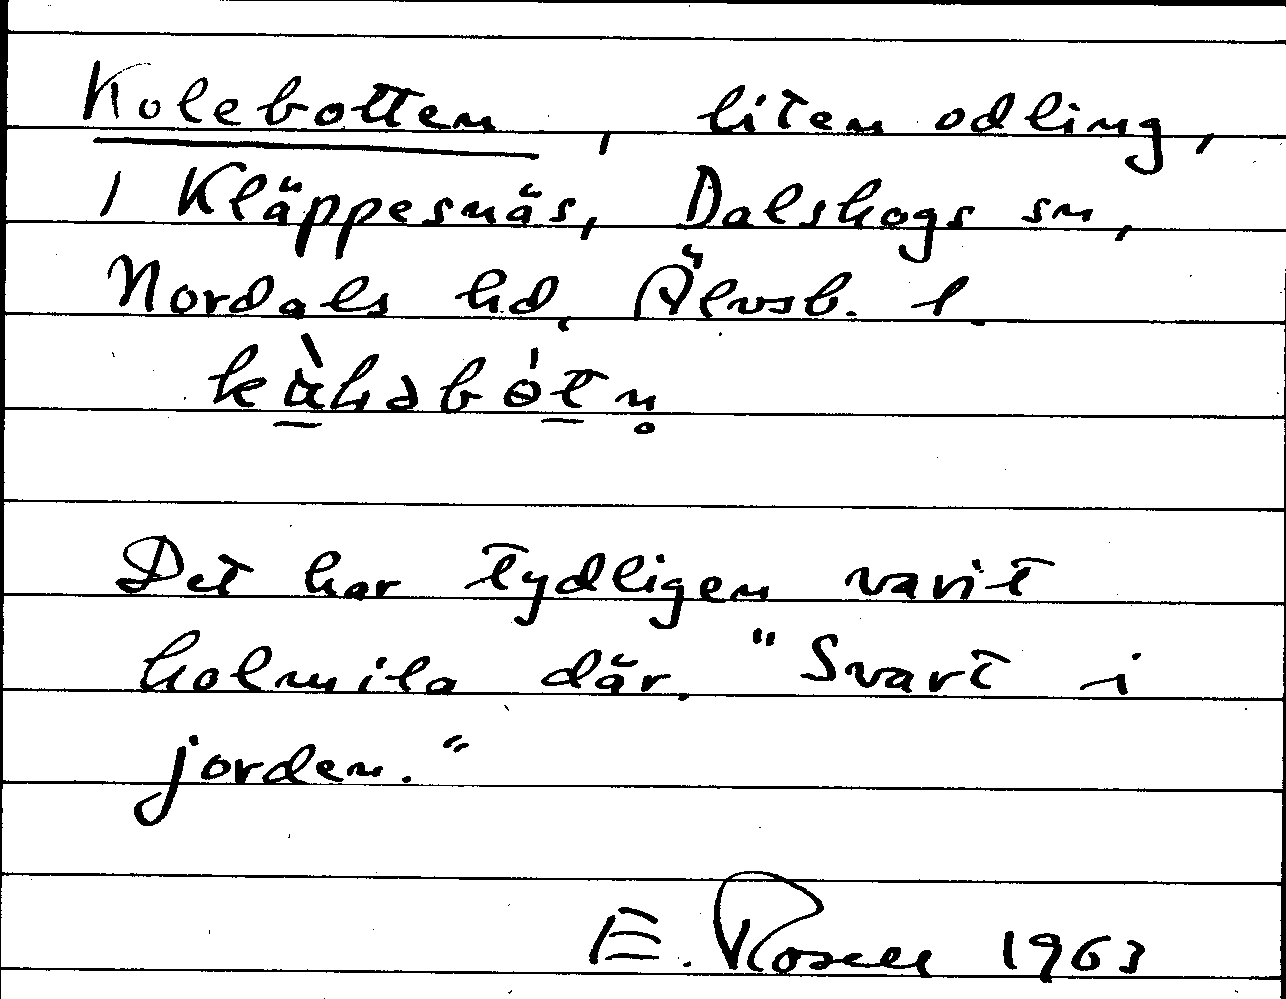 Kolebotten, liten odling,
1 Kläppesnäs, Dalskogs sn,
Nordals hd, Älvsb. l.
Det har tydligen varit
kolmila där. "Svart i
jorden."
E. Rosell 1963